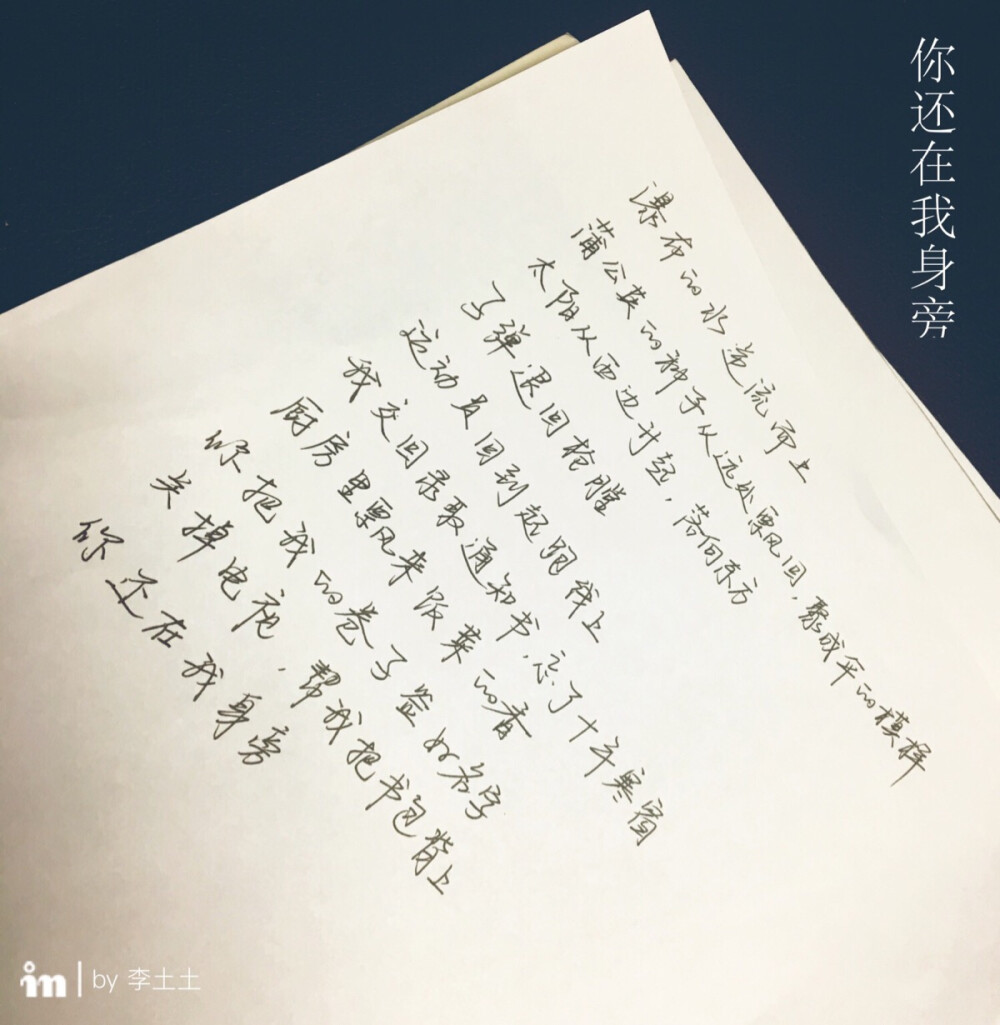 你还在我身旁
瀑布的水逆流而上
蒲公英的种子从远处飘回，聚成伞的模样
太阳从西边升起，落向东方
子弹退回枪膛
运动员回到起跑线上
我交回录取通知书，忘了十年寒窗
厨房里飘来饭菜的香
你把我的卷子签好名字
关掉电视，帮我把书包背上
你还在我身旁
im | by 李土土